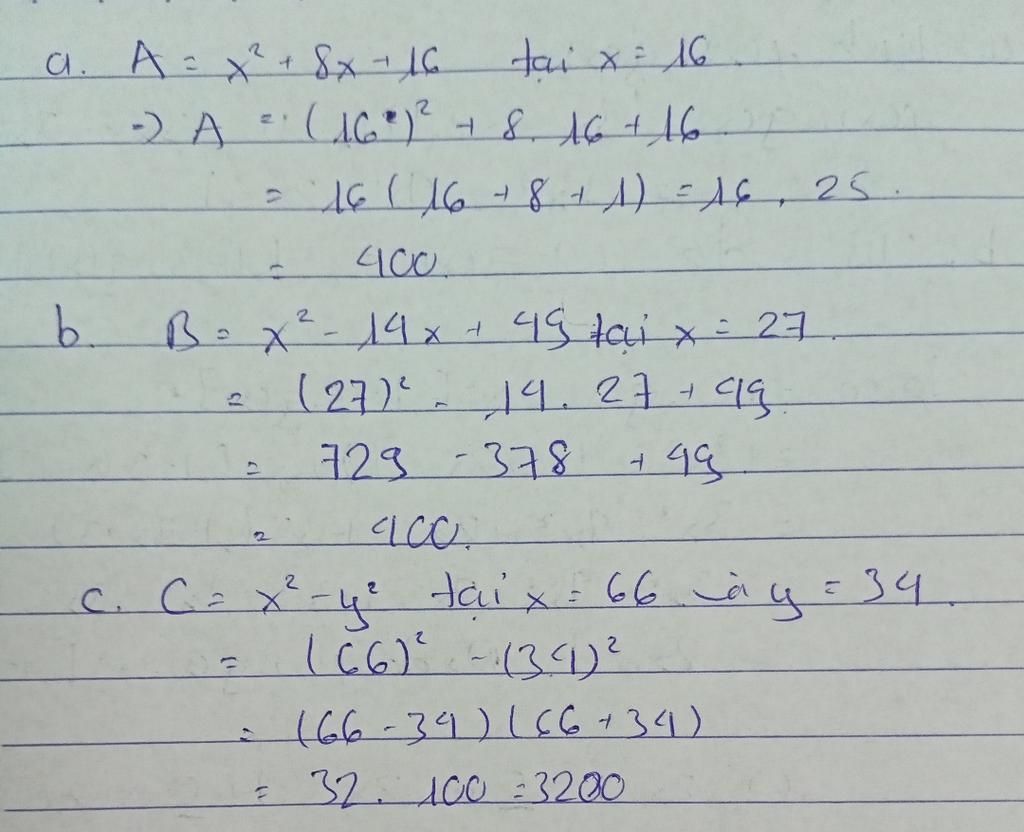 a. A = x² + 8x + 16 tại x = 16.
=> A = (16)² + 8. 16 + 16
= 16 ( 16 + 8 + 1) = 16 . 25.
= 400.
b. B = x² - 14x + 49 tại x = 27.
= (27)² - 14. 27 + 49.
= 729 - 378 + 49.
= 400.
c. C = x² - y² tại x = 66 và y = 34.
= (66)² - (34)²
= (66 - 34) (66 + 34)
= 32. 100 = 3200